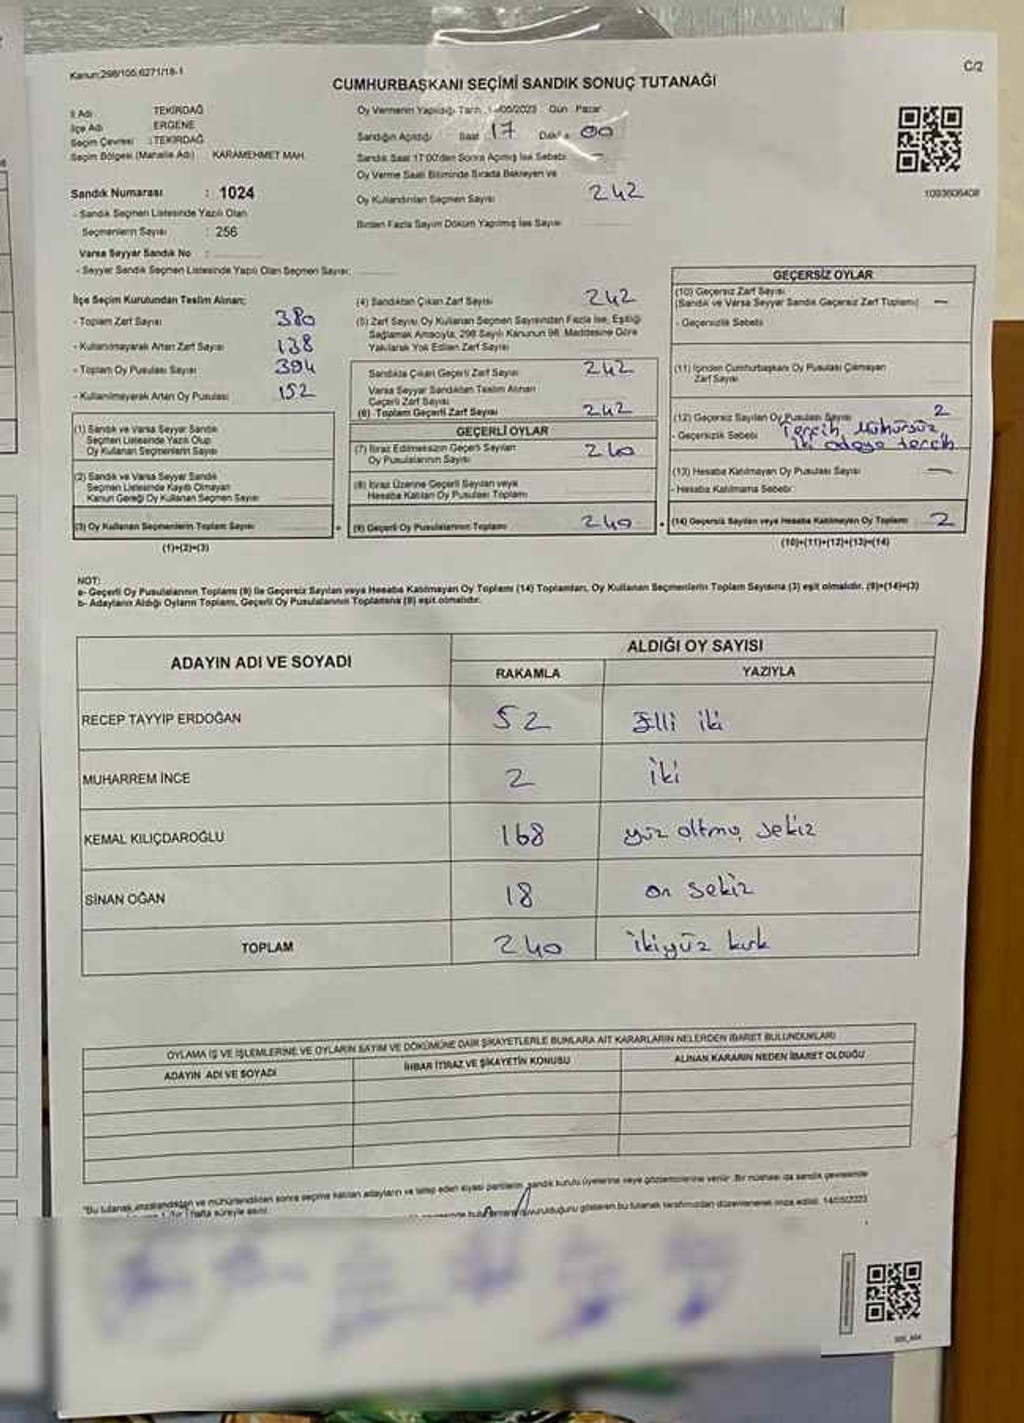 Kanun:298/105;6271/18-1
C/2
CUMHURBAŞKANI SEÇİMİ SANDIK SONUÇ TUTANAĞI
İl Adı TEKİRDAĞ
İlçe Adı ERGENE
Seçim Çevresi : TEKİRDAĞ
Seçim Bölgesi (Mahalle Adı) KARAMEHMET MAH.
Sandık Numarası : 1024
- Sandık Seçmen Listesinde Yazılı Olan
Seçmenlerin Sayısı : 256
Varsa Seyyar Sandık No :
- Seyyar Sandık Seçmen Listesinde Yazılı Olan Seçmen Sayısı:
Oy Vermenin Yapıldığı Tarih /05/2023 Gün Pazar
Sandığın Açıldığı Saat 17 Dakika 00
Sandık Saat 17:00'den Sonra Açılmış İse Sebebi -
Oy Verme Saati Bitiminde Sırada Bekleyen ve
Oy Kullandırılan Seçmen Sayısı 242
Birden Fazla Sayım Döküm Yapılmış İse Sayısı
1093606408
İlçe Seçim Kurulundan Teslim Alınan;
- Toplam Zarf Sayısı 380
- Kullanılmayarak Artan Zarf Sayısı 138
- Toplam Oy Pusulası Sayısı 394
- Kullanılmayarak Artan Oy Pusulası 152
(1) Sandık ve Varsa Seyyar Sandık
Seçmen Listesinde Yazılı Olup
Oy Kullanan Seçmenlerin Sayısı
(2) Sandık ve Varsa Seyyar Sandık
Seçmen Listesinde Kayıtlı Olmayan
Kanun Gereği Oy Kullanan Seçmen Sayısı
(3) Oy Kullanan Seçmenlerin Toplam Sayısı
(1)+(2)=(3)
(4) Sandıktan Çıkan Zarf Sayısı 242
(5) Zarf Sayısı Oy Kullanan Seçmen Sayısından Fazla İse, Eşitliği
Sağlamak Amacıyla, 298 Sayılı Kanunun 98. Maddesine Göre
Yakılarak Yok Edilen Zarf Sayısı
Sandıkta Çıkan Geçerli Zarf Sayısı 242
Varsa Seyyar Sandıktan Teslim Alınan
Geçerli Zarf Sayısı
(6) Toplam Geçerli Zarf Sayısı 242
GEÇERLİ OYLAR
(7) İtiraz Edilmeksizin Geçerli Sayılan
Oy Pusulalarının Sayısı 240
(8) İtiraz Üzerine Geçerli Sayılan veya
Hesaba Katılan Oy Pusulası Toplamı
(9) Geçerli Oy Pusulalarının Toplamı 240
GEÇERSİZ OYLAR
(10) Geçersiz Zarf Sayısı
(Sandık ve Varsa Seyyar Sandık Geçersiz Zarf Toplamı) -
- Geçersizlik Sebebi
(11) İçinden Cumhurbaşkanı Oy Pusulası Çıkmayan
Zarf Sayısı
(12) Geçersiz Sayılan Oy Pusulası Sayısı 2
- Geçersizlik Sebebi Tercih Mühürsüz
iki adaya tercih
(13) Hesaba Katılmayan Oy Pusulası Sayısı -
- Hesaba Katılmama Sebebi
(14) Geçersiz Sayılan veya Hesaba Katılmayan Oy Toplamı 2
(10)+(11)+(12)+(13)=(14)
NOT:
a- Geçerli Oy Pusulalarının Toplamı (9) ile Geçersiz Sayılan veya Hesaba Katılmayan Oy Toplamı (14) Toplamları, Oy Kullanan Seçmenlerin Toplam Sayısına (3) eşit olmalıdır. (9)+(14)=(3)
b- Adayların Aldığı Oyların Toplamı, Geçerli Oy Pusulalarının Toplamına (9) eşit olmalıdır.
ADAYIN ADI VE SOYADI ALDIĞI OY SAYISI
RAKAMLA YAZIYLA
RECEP TAYYİP ERDOĞAN 52 Elli iki
MUHARREM İNCE 2 iki
KEMAL KILIÇDAROĞLU 168 yüz altmış sekiz
SİNAN OĞAN 18 on sekiz
TOPLAM 240 ikiyüz kırk
OYLAMA İŞ VE İŞLEMLERİNE VE OYLARIN SAYIM VE DÖKÜMÜNE DAİR ŞİKAYETLERLE BUNLARA AİT KARARLARIN NELERDEN İBARET BULUNDUKLARI
ADAYIN ADI VE SOYADI İHBAR İTİRAZ VE ŞİKAYETİN KONUSU ALINAN KARARIN NEDEN İBARET OLDUĞU
"Bu tutanak imzalandıktan ve mühürlendikten sonra seçime katılan adayların ve talep eden siyasi partilerin sandık kurulu üyelerine veya gözlemcilerine verilir. Bir nüshası da sandık çevresinde
hafta süreyle asılır. gösteren bu tutanak tarafımızdan düzenlenerek imza edildi. 14/05/2023